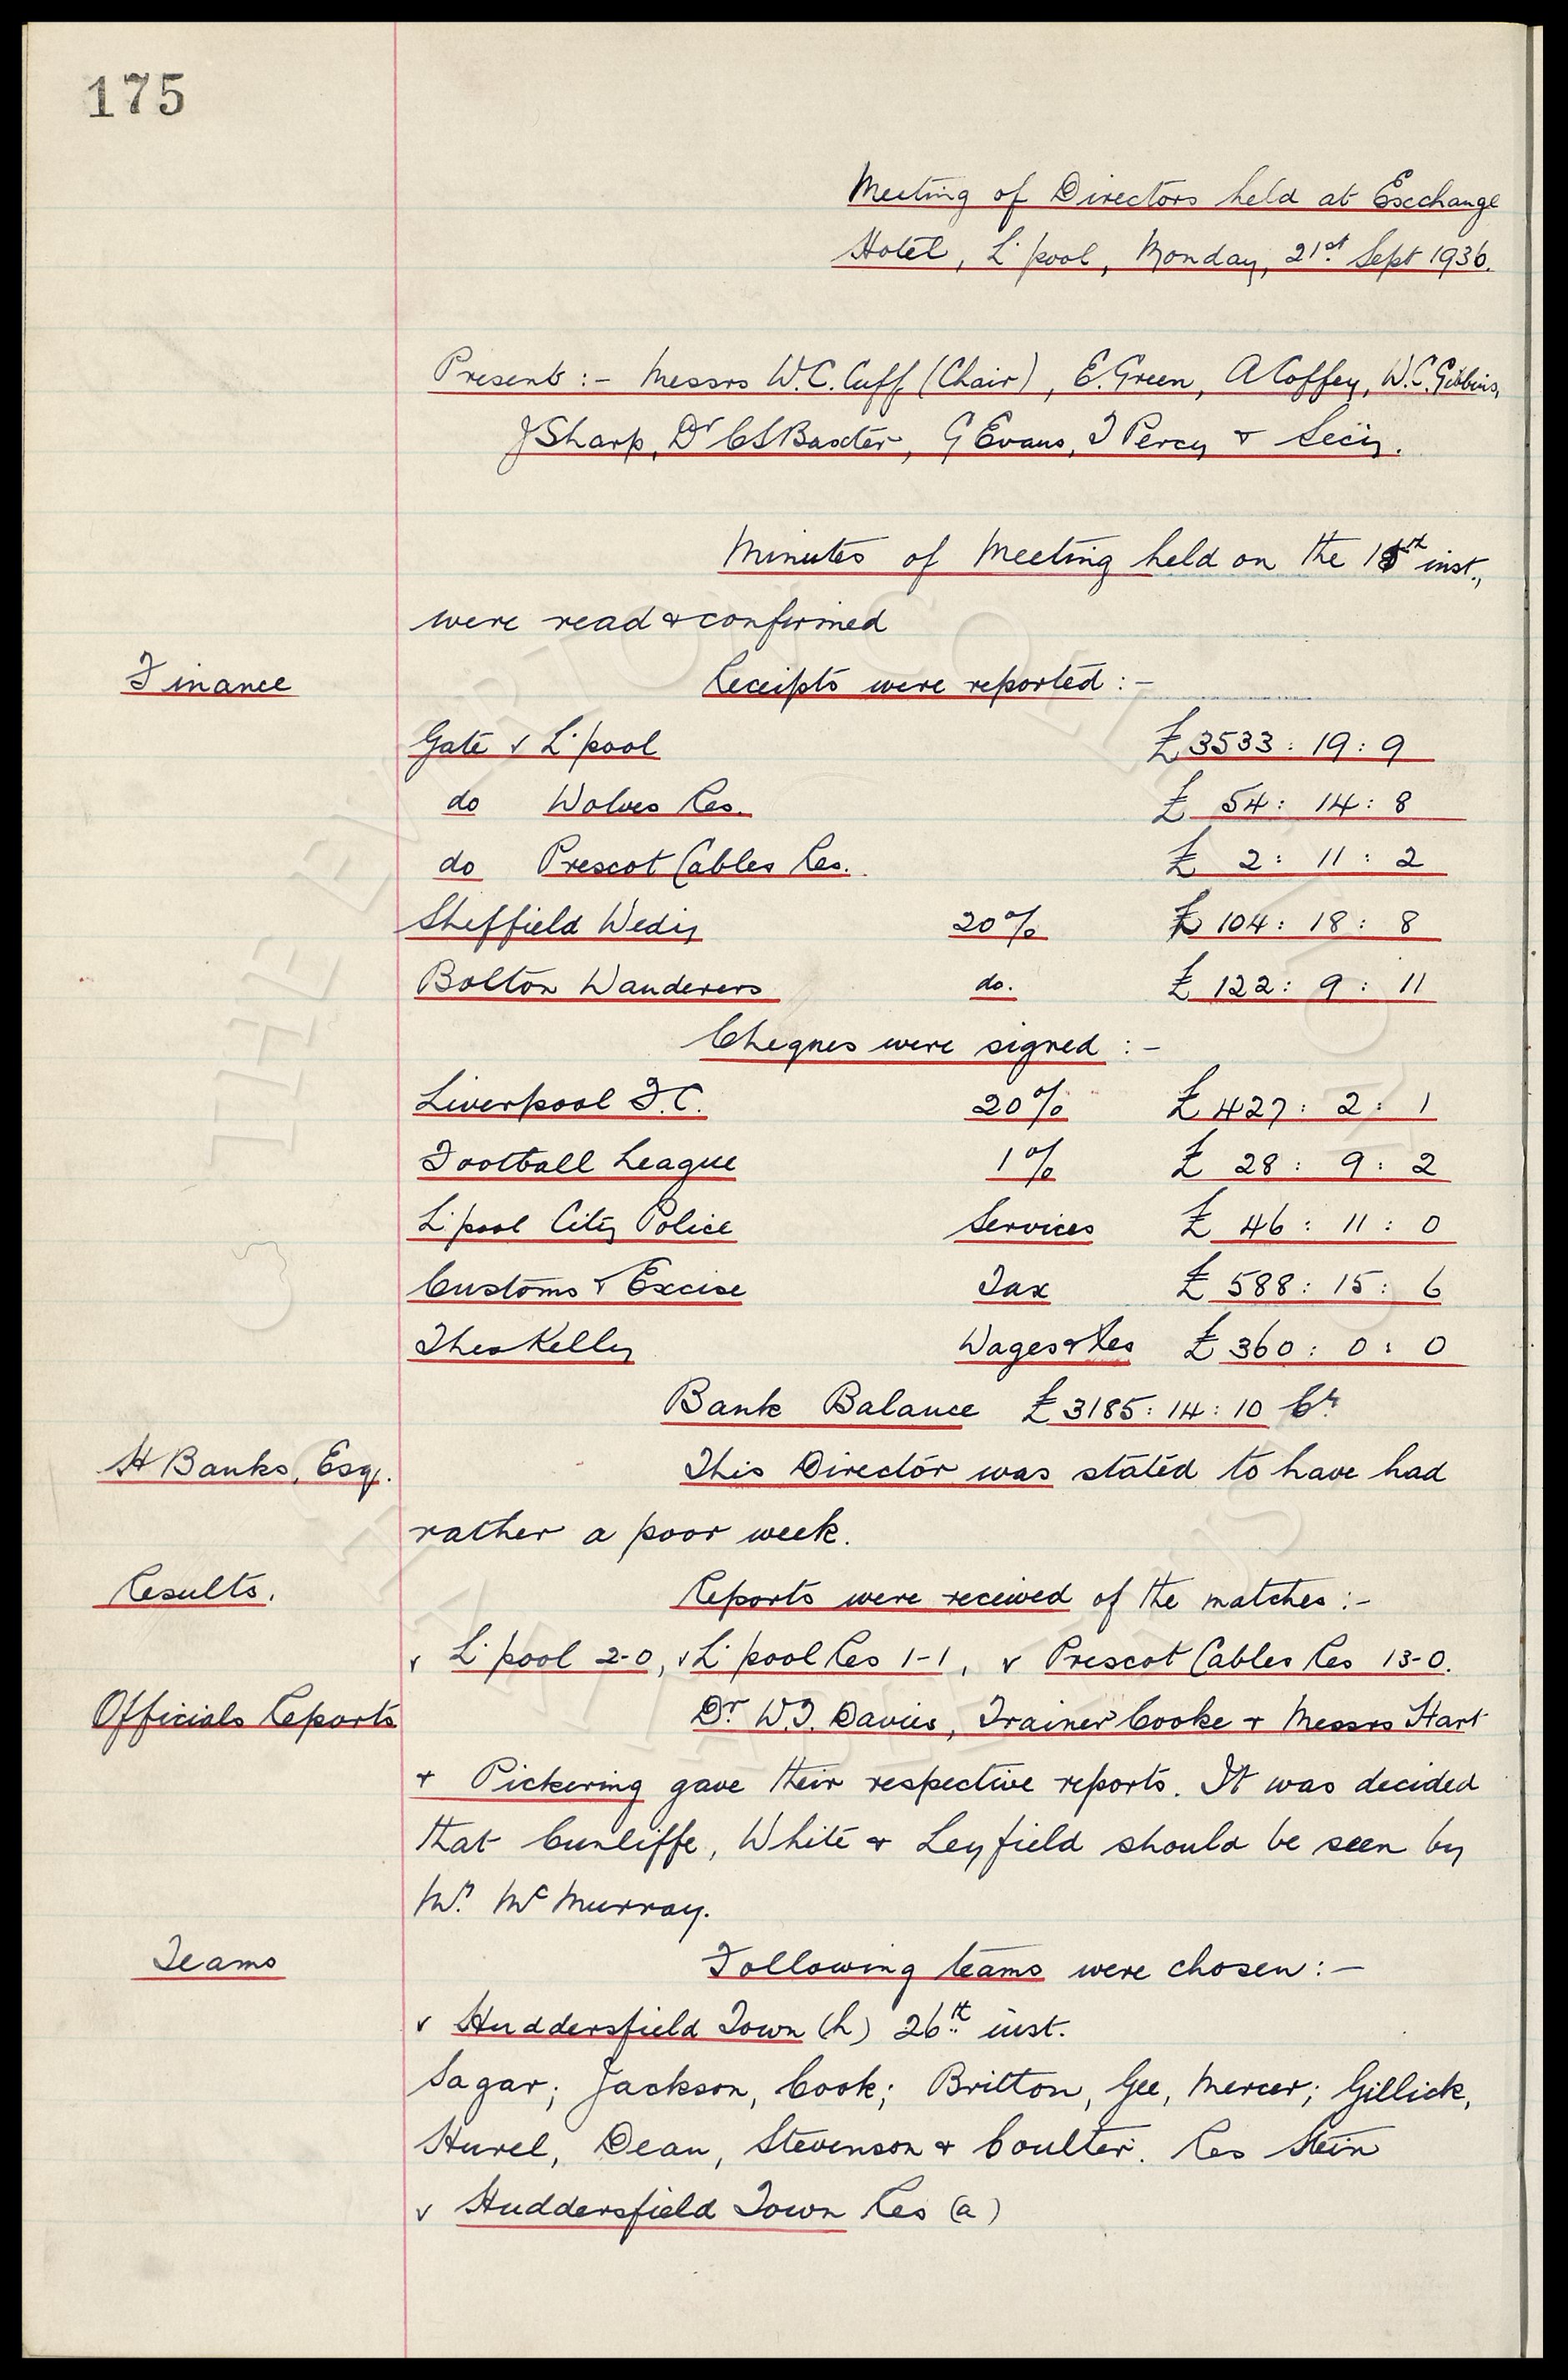 175
Meeting of Directors held at Exchange
Hotel, L'pool, Monday, 21st Sept 1936.
Present :- Messrs W.C. Cuff (Chair), E. Green, A Coffey, W.C. Gibbins,
J Sharp, Dr C S Baxter, G Evans, T Percy & Secy.
Minutes of Meeting held on the 15th inst.,
were read & confirmed
Finance Receipts were reported :-
Gate v L'pool £3533 : 19 : 9
do Wolves Res. £ 54 : 14 : 8
do Prescot Cables Res. £ 2 : 11 : 2
Sheffield Wedy 20% £ 104 : 18 : 8
Bolton Wanderers do. £ 122 : 9 : 11
Cheques were signed :-
Liverpool F.C. 20% £ 427 : 2 : 1
Football League 1% £ 28 : 9 : 2
L'pool City Police Services £ 46 : 11 : 0
Customs & Excise Tax £ 588 : 15 : 6
Theo Kelly Wages & Res £ 360 : 0 : 0
Bank Balance £3185 : 14 : 10 Cr.
H Banks, Esq. This Director was stated to have had
rather a poor week.
Results. Reports were received of the matches :-
v L'pool 2-0, v L'pool Res 1-1, v Prescot Cables Res 13-0.
Officials Reports Dr. W.J. Davies, Trainer Cooke & Messrs Hart
& Pickering gave their respective reports. It was decided
that Cunliffe, White & Leyfield should be seen by
Mr. McMurray.
Teams Following teams were chosen :-
v Huddersfield Town (h) 26th inst.
Sagar; Jackson, Cook; Britton, Gee, Mercer; Gillick,
Hurel, Dean, Stevenson & Coulter. Res Stein
v Huddersfield Town Res (a)